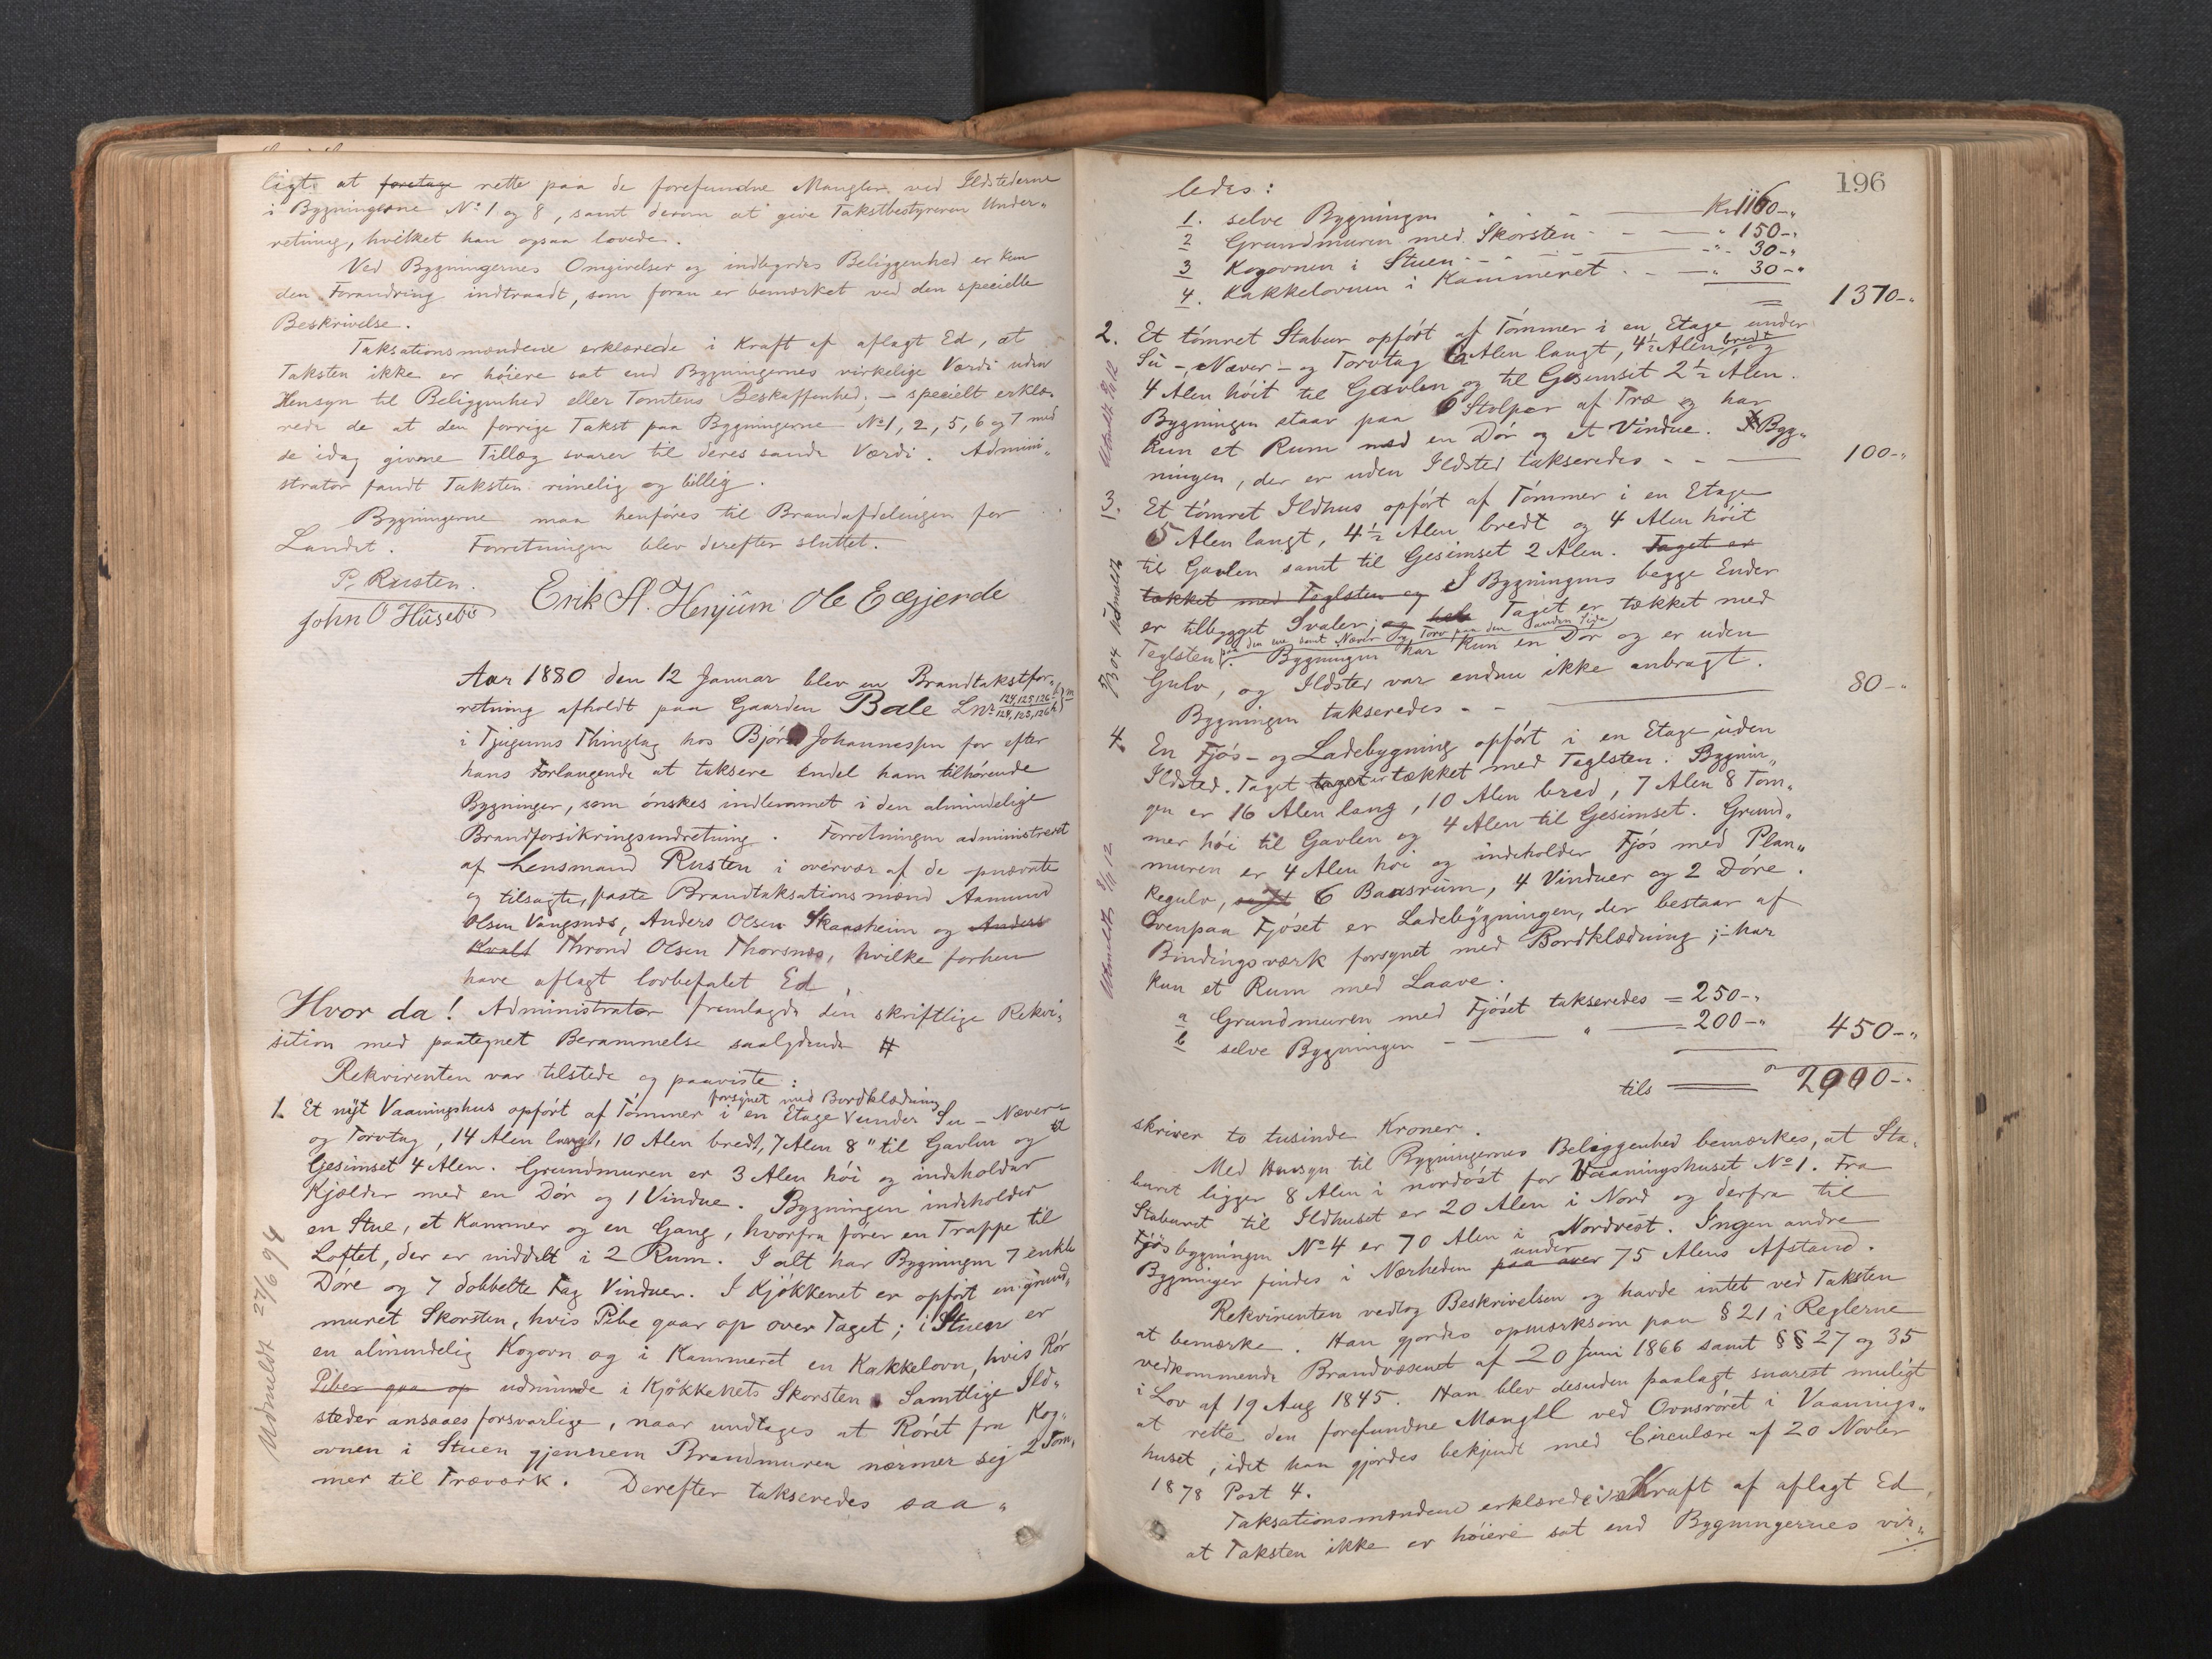 ligt at foretage rette paa de forefundne Mangler ved Ildstederne
i Bygningerne No 1 og 8, samt derom at give Takstbestyreren Under„
retning, hvilket han ogsaa lovede.
Ved Bygningernes Omgivelser og indbyrdes Beliggenhed er kun
den Forandring indtraadt, som foran er bemærket ved den specielle
Beskrivelse.
Taksationsmændene erklærede i Kraft af aflagt Ed, at
Taksten ikke er höiere sat end Bygningernes virkelige Værdi uden
Hensyn til Beliggenhed eller Tomtens Beskaffenhed; – specielt erklæ„
rede de at den forrige Takst paa Bygningerne No 1, 2, 5, 6 og 7 med
de idag givne Tillæg svarer til deres sande Værdi. Admini„
strator fandt Taksten rimelig og billig.
Bygningerne maa henföres til Brandafdelingen for
Landet. Forretningen blev derefter sluttet.
P. Rusten.
John O Husebö Erik A. Henjum Ole E Gjerde
Aar 1880 den 12 Januar blev en Brandtakstfor„
retning afholdt paa Gaarden Bale LNr 124, 125, 126
i Tjugums Thinglag hos Björn Johannessen for efter
hans Forlangende at taksere endel ham tilhörende
Bygninger, som önskes indlemmet i den almindelige
Brandforsikringsindretning. Forretningen administreret
af Lensmand Rusten i overvær af de opnævnte
og tilsagte, faste Brandtaksationsmænd Aamund
Olsen Vangsnes, Anders Olsen Skaasheim og Anders
Kvall Thrond Olsen Thorsnes, hvilke forhen
have aflagt lovbefalet Ed.
Hvor da! Administrator fremlagde den skriftlige Rekvi„
sition med paategnet Berammelse saalydende #
Rekvirenten var tilstede og paaviste:
forsynet med Bordklædning
1. Et nyt Vaaningshus opfört af Tömmer i en Etage under Su – Næver„
og Torvtag, 14 Alen langt, 10 Alen bredt, 7 Alen 8" til Gavlen og til
Gesimset 4 Alen. Grundmuren er 3 Alen höi og indeholder
Kjælder med en Dör og 1 Vindue. Bygningen indeholder
en Stue, et Kammer og en Gang, hvorfra förer en Trappe til
Loftet, der er inddelt i 2 Rum. I alt har Bygningen 7 enkle
Döre og 7 dobbelte Fag Vinduer. I Kjökkenet er opfört en grund„
muret Skorsten, hvis Pibe gaar op over Taget; i Stuen er
en almindelig Kogovn og i Kammeret en Kakkelovn, hvis Rör
Piber gaa op udmunde i Kjökkenets Skorsten. Samtlige Ild„
steder ansaaes forsvarlige, naar undtages at Röret fra Kog„
ovnen i Stuen gjennem Brandmuren nærmer sig 2 Tom„
mer til Træværk. Derefter takseredes saa„
Udmeldt 27/6 94
196
ledes:
1. selve Bygningen Kr 1160 –„
2 Grundmuren med Skorsten „ 150 –„
3 Kogovnen i Stuen „ 30 –„
4. Kakkelovnen i Kammeret „ 30 –„
1370 –„
2. Et tömret Stabur opfört af Tömmer i en Etage under
Su –, Næver – og Torvtag 6 Alen langt, 4½ Alen bredt og
4 Alen höit til Gavlen og til Gesimset 2½ Alen.
Bygningen staar paa 6 Stolper af Træ og har
kun et Rum med en Dör og et Vindue. Byg„
ningen, der er uden Ildsted takseredes 100 –„
3. Et tömret Ildhus opfört af Tömmer i en Etage
5 Alen langt, 4½ Alen bredt og 4 Alen höit
til Gavlen samt til Gesimset 2 Alen. Taget er
tækket med Teglsten og I Bygningens begge Ender
er tilbygget Svaler; Taget er tækket med
paa den ene samt Næver og Torv paa den anden Side
Teglsten. Bygningen har kun en Dör og er uden
Gulv, og Ildsted var endnu ikke anbragt.
Bygningen takseredes 80 –„
4. En Fjös – og Ladebygning opfört i en Etage uden
Ildsted. Taget taget er tækket med Teglsten. Bygnin„
gen er 16 Alen lang, 10 Alen bred, 7 Alen 8 Tom„
mer höi til Gavlen og 4 Alen til Gesimset. Grund„
muren er 4 Alen höi og indeholder Fjös med Plan„
kegulv, 6 Baasrum, 4 Vinduer og 2 Döre.
Ovenpaa Fjöset er Ladebygningen, der bestaar af
Bindingsværk forsynet med Bordklædning; – har
kun et Rum med Laave.
a Grundmuren med Fjöset takseredes = 250 –„
b selve Bygningen „ 200 –„ 450 –„
tils 2000 –„
skriver to tusinde Kroner.
Med Hensyn til Bygningernes Beliggenhed bemærkes, at Sta„
buret ligger 8 Alen i nordöst for Vaaningshuset No 1. Fra
Staburet til Ildhuset er 20 Alen i Nord og derfra til
Fjösbygningen No 4 er 70 Alen i Nordvest. Ingen andre
Bygninger findes i Nærheden paa over under 75 Alens Afstand.
Rekvirenten vedtog Beskrivelsen og havde intet ved Taksten
at bemærke. Han gjordes opmærksom paa § 21 i Reglerne
vedkommende Brandvæsenet af 20 Juni 1866 samt §§ 27 og 35
i Lov af 19 Aug 1845. Han blev desuden paalagt snarest muligt
at rette den forefundne Mangel ved Ovnsröret i Vaanings„
huset, idet han gjordes bekjendt med Circulære af 20 Novbr
1878 Post 4.
Taksationsmændene erklærede i Kraft af aflagt Ed,
at Taksten ikke er höiere sat end Bygningernes vir„